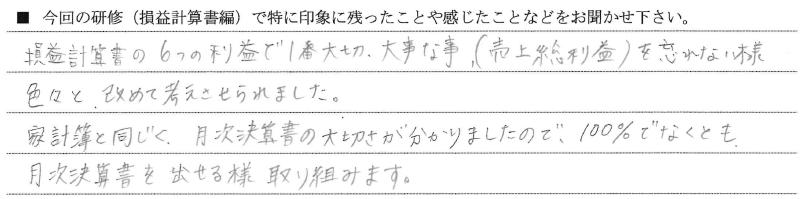 ■ 今回の研修（損益計算書編）で特に印象に残ったことや感じたことなどをお聞かせ下さい。
損益計算書の6つの利益で1番大切、大事な事、(売上総利益)を忘れない様
色々と、改めて考えさせられました。
家計簿と同じく、月次決算書の大切さが分かりましたので、100%でなくとも、
月次決算書を出せる様取り組みます。